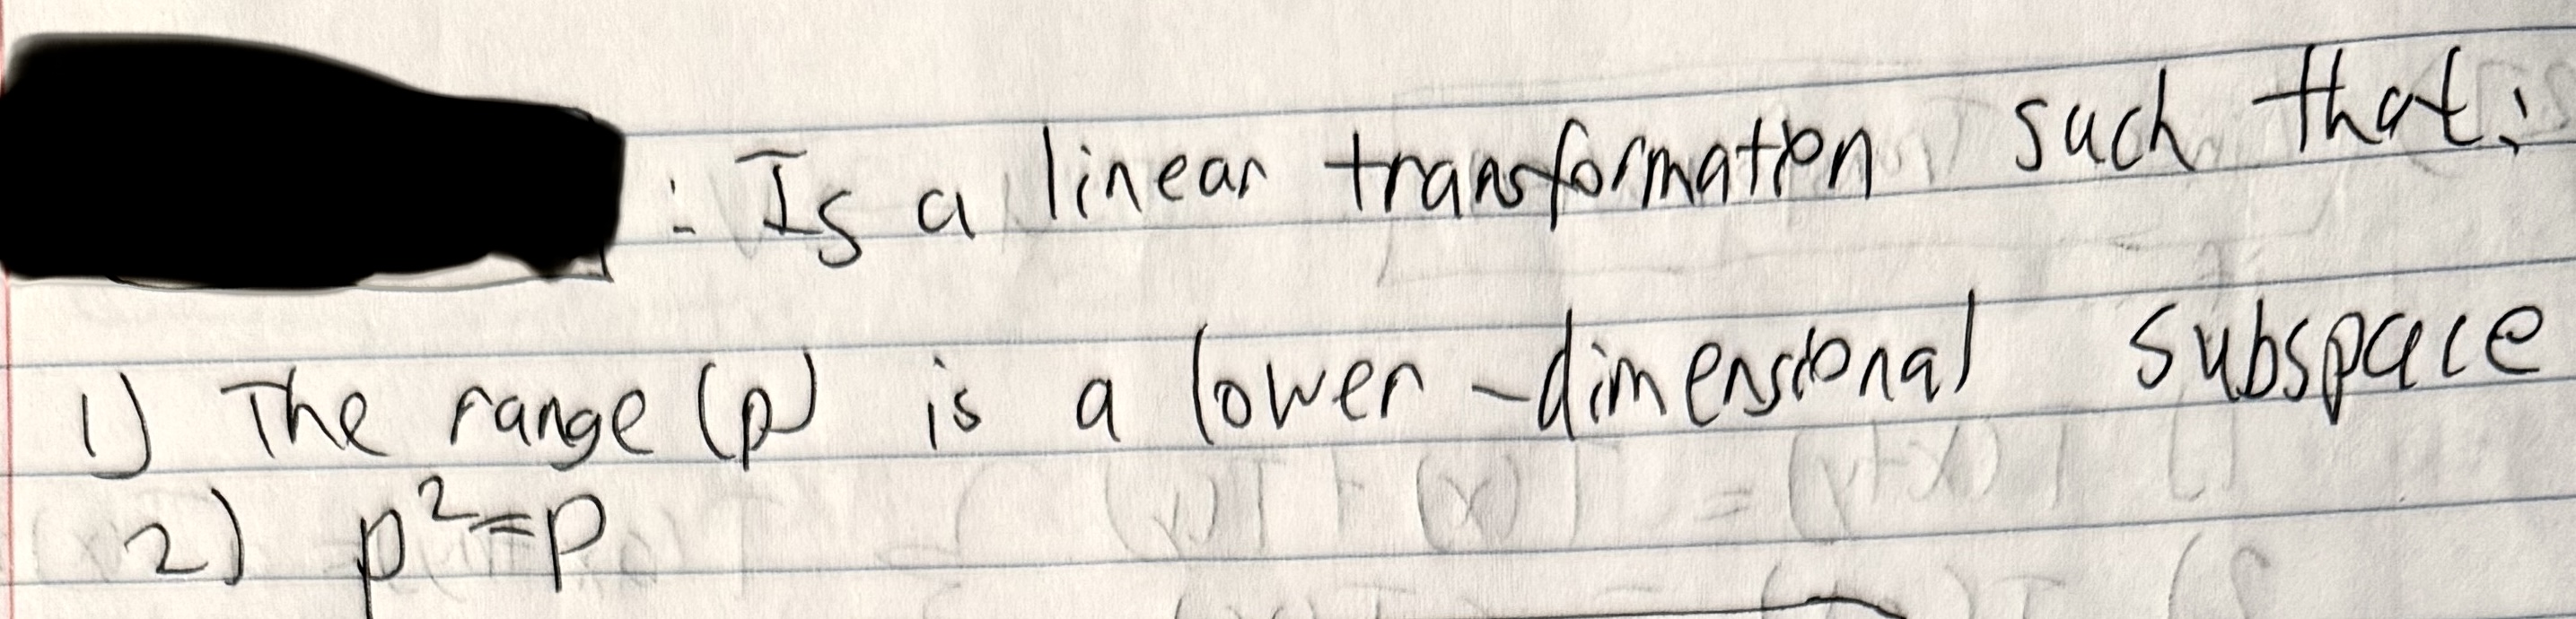 : Is a linear transformation such that:
1) The range (p) is a lower-dimensional subspace
2) p²=p